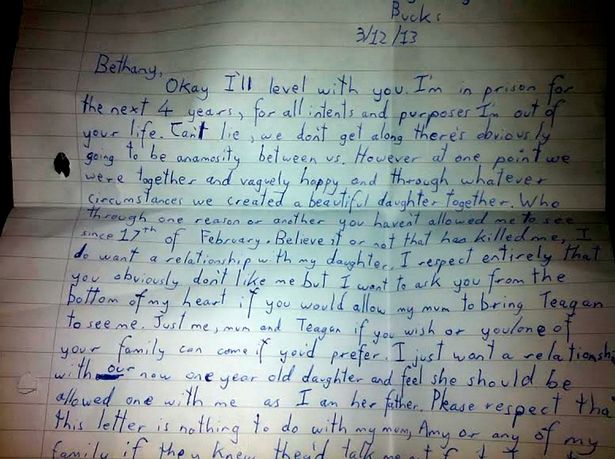 Bucks
3/12/13
Bethany,
Okay I'll level with you. I'm in prison for
the next 4 years, for all intents and purposes I'm out of
your life. Can't lie, we don't get along there's obviously
going to be anamosity between us. However at one point we
were together and vaguely happy and through whatever
circumstances we created a beautiful daughter together. Who
through one reason or another you haven't allowed me to see
since 17th of February. Believe it or not that has killed me, I
do want a relationship with my daughter, I respect entirely that
you obviously don't like me but I want to ask you from the
bottom of my heart if you would allow my mum to bring Teagan
to see me. Just me, mum and Teagan if you wish or you/one of
your family can come if you'd prefer. I just want a relationshi
with our now one year old daughter and feel she should be
allowed one with me as I am her father. Please respect tha
this letter is nothing to do with my mum, Amy or any of my
family if they knew they'd talk me